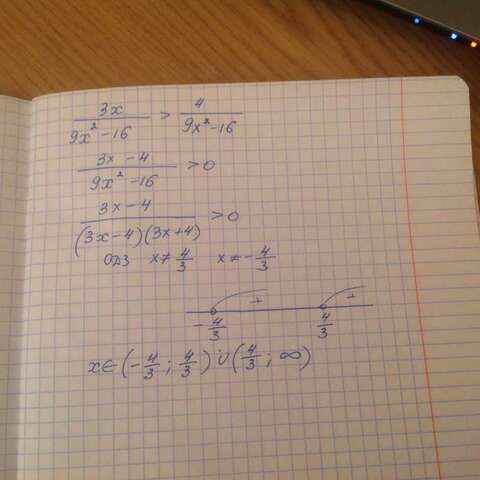 3x / 9x² - 16 > 4 / 9x² - 16
3x - 4 / 9x² - 16 > 0
3x - 4 / (3x - 4)(3x + 4) > 0
ОДЗ x ≠ 4/3 x ≠ - 4/3
+ +
- 4/3 4/3
x ∈ (- 4/3 ; 4/3) ∪ (4/3 ; ∞)